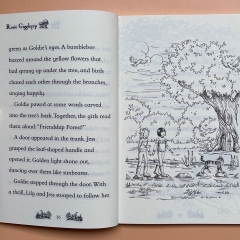 Rosie Gigglepip
green as Goldie's eyes. A bumblebee
buzzed around the yellow flowers that
had sprung up under the tree, and birds
chased each other through the branches,
singing happily.
Goldie pawed at some words carved
into the tree's bark. Together, the girls read
them aloud: "Friendship Forest!"
A door appeared in the trunk. Jess
grasped the leaf-shaped handle and
opened it. Golden light shone out,
dancing over them like sunbeams.
Goldie stepped through the door. With
a thrill, Lily and Jess stooped to follow her